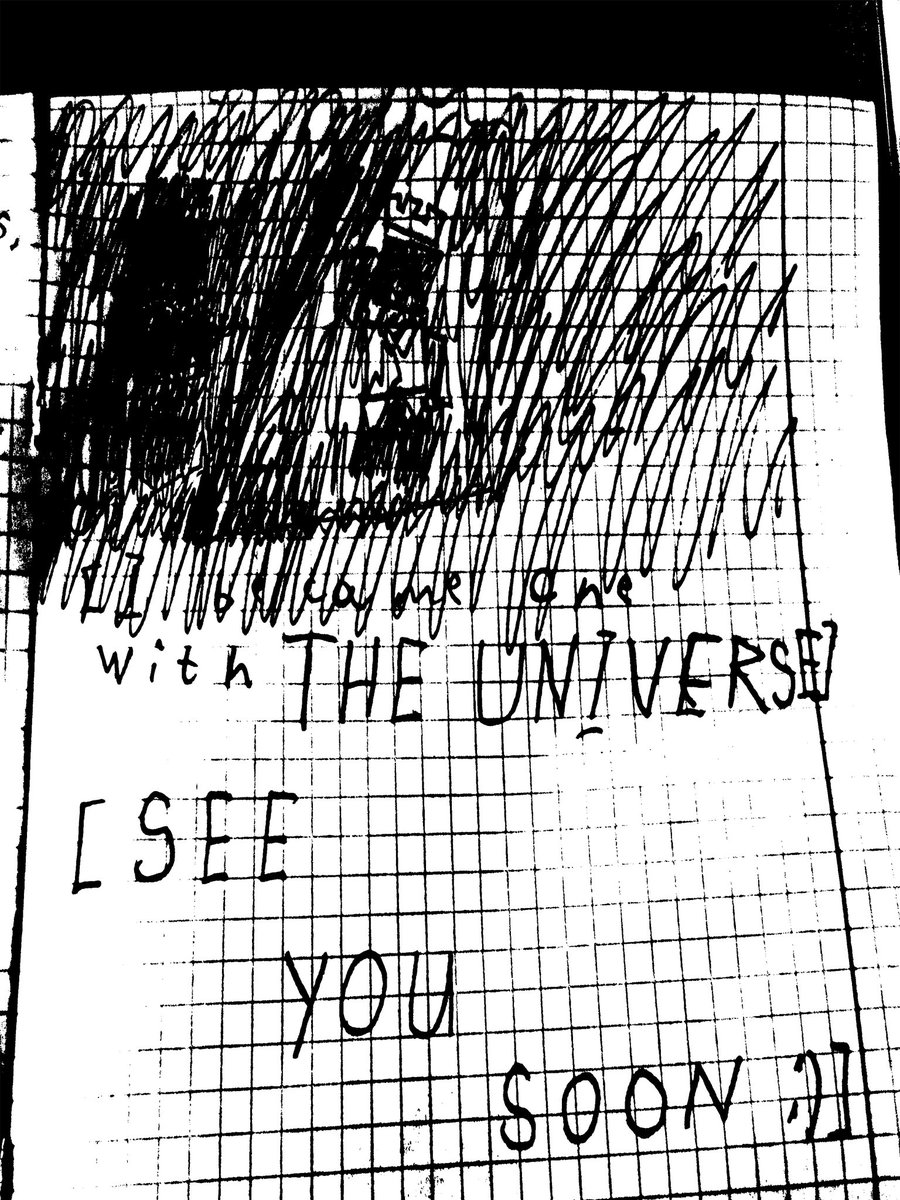 [I became one
with THE UNIVERSE]
[SEE
YOU
SOON :)]